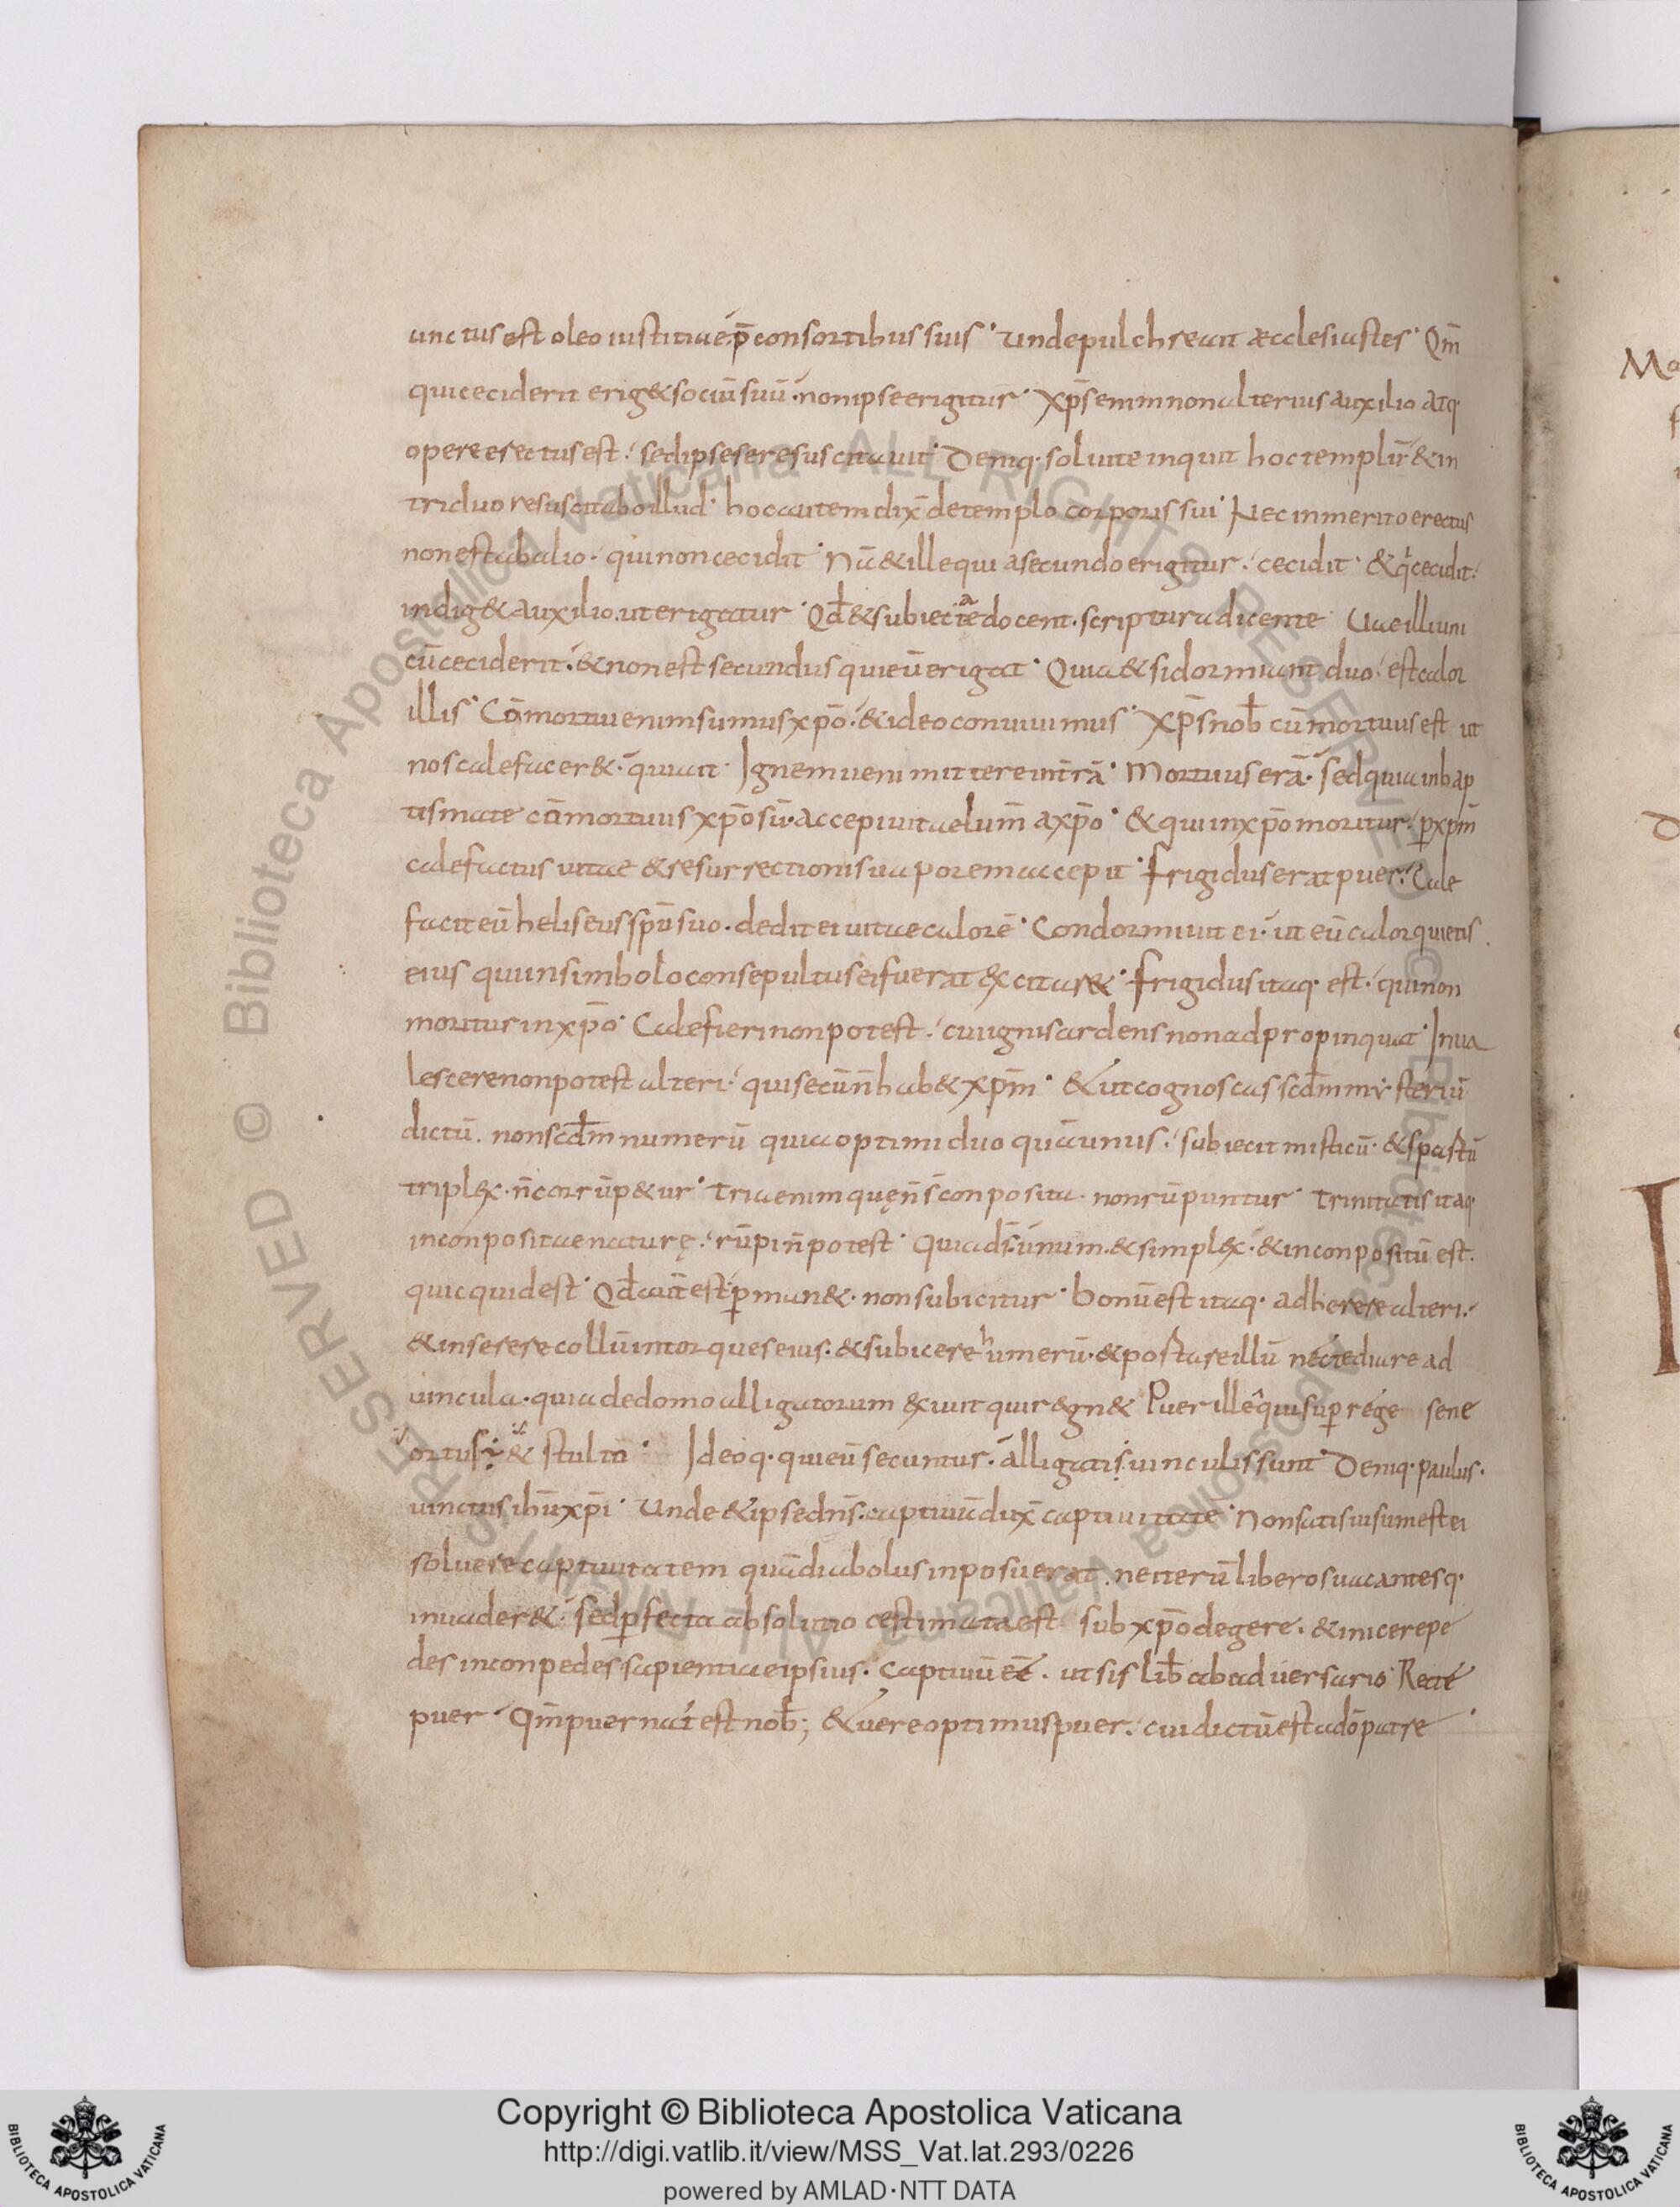 unctus est oleo iustitiae p̄ consortibus suis· Unde pulchre ait æcclesiastes· Qm̄
qui ceciderit erig& sociū suū· non ipse erigitur· Xp̄s enim non alterius auxilio atq·
opere erectus est· sed ipse se resuscitauit· Deniq· soluite inquit hoc templū· & in
triduo resuscitabo illud· hoc autem dix̄ de templo corporis sui· Nec inmerito erectus
non est ab alio· qui non cecidit· Nā & ille qui a secundo erigitur· cecidit· & q cecidit·
indig& auxilio· ut erigatur· Qd̄ & subiecta docent· scriptura dicente Uae illi uni
cū ceciderit· & non est secundus qui eū erigat· Quia & si dormiant duo· est calor
illis· Cōmortui enim sumus xp̄o· & ideo conuiuimus· Xp̄s nob̄ cūmortuus est ut
nos calefacer&· qui ait· Ignem ueni mittere in t̄rā· Mortuus erā· sed quia in bap
tismate cōmortuus xp̄o sū· accepi uitae lum̄ a xp̄o· & qui in xp̄o moritur· p xpm̄
calefactus uitae & resurrectionis uaporem accepit· Frigidus erat puer· Cale
facit eū heliseus sp̄u suo· dedit ei uitae calorē· Condormiuit ei· ut eū calor quietis
eius qui in simbolo consepultus ei fuerat excitar&· Frigidus itaq· est· qui non
moritur in xp̄o· Calefieri non potest· cui ignis ardens non adpropinquat· Inua
lescere non potest alteri· qui secū n̄ hab& xpm̄· & ut cognoscas scdm̄ mysteriū
dictū· non scdm̄ numerū quia optimi duo quā unus· subiecit misticū· & spartū
triplex· n̄ corrūp&ur· Tria enim quę n̄ s̄ conposita· non rūpuntur· Trinitatis itaq·
inconpositae naturę· rūpi n̄ potest· quia ds̄· unum· & simplex· & inconpositū est·
quicquid est· Qd̄ aut̄ est· p man&· non subicitur· bonū est itaq· adherere alteri·
& inserere collū in torques eius· & subicere humerū· & portare illū nec tediare ad
uincula· quia de domo alligatorum exiuit qui regn& Puer ille qui sup rege sene
ortus & stulto· Ideoq· qui eū secuntur· alligatis uinculis sunt Deniq· paulus·
uinctus ih̄u xp̄i· Unde & ipse dn̄s· captiuā dux̄ captiuitate· Non satis uisum est ei
soluere captiuitatem quā diabolus inposuerat· ne iterū liberos uacantesq·
inuader&· sed pfecta absolutio aestimata est sub xp̄o degere· & inicere pe
des in conpedes sapientiae ipsius· captiuū eē· ut sis lib̄ ab aduersario· Recte
puer· Qm̄ puer nat est nob̄; & uere optimus puer· cui dictū est a dō patre
Copyright © Biblioteca Apostolica Vaticana
http://digi.vatlib.it/view/MSS_Vat.lat.293/0226
powered by AMLAD·NTT DATA